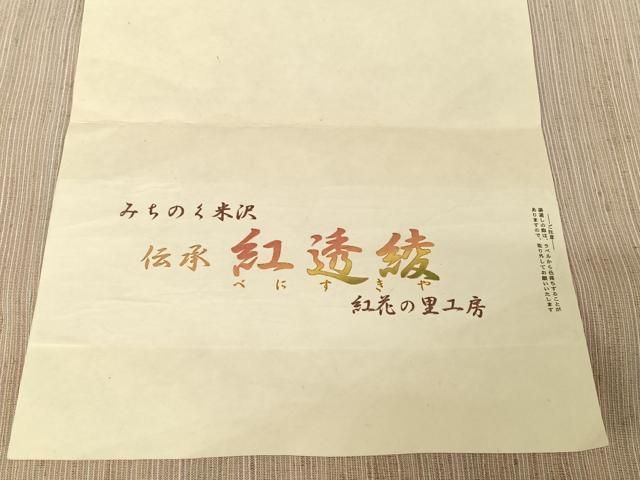 みちのく米沢
伝承 紅透綾
べにすきや
紅花の里工房
ご注意
湯通しの際は、ラベルから色落ちすることが
ありますので、取り外してお願いいたします